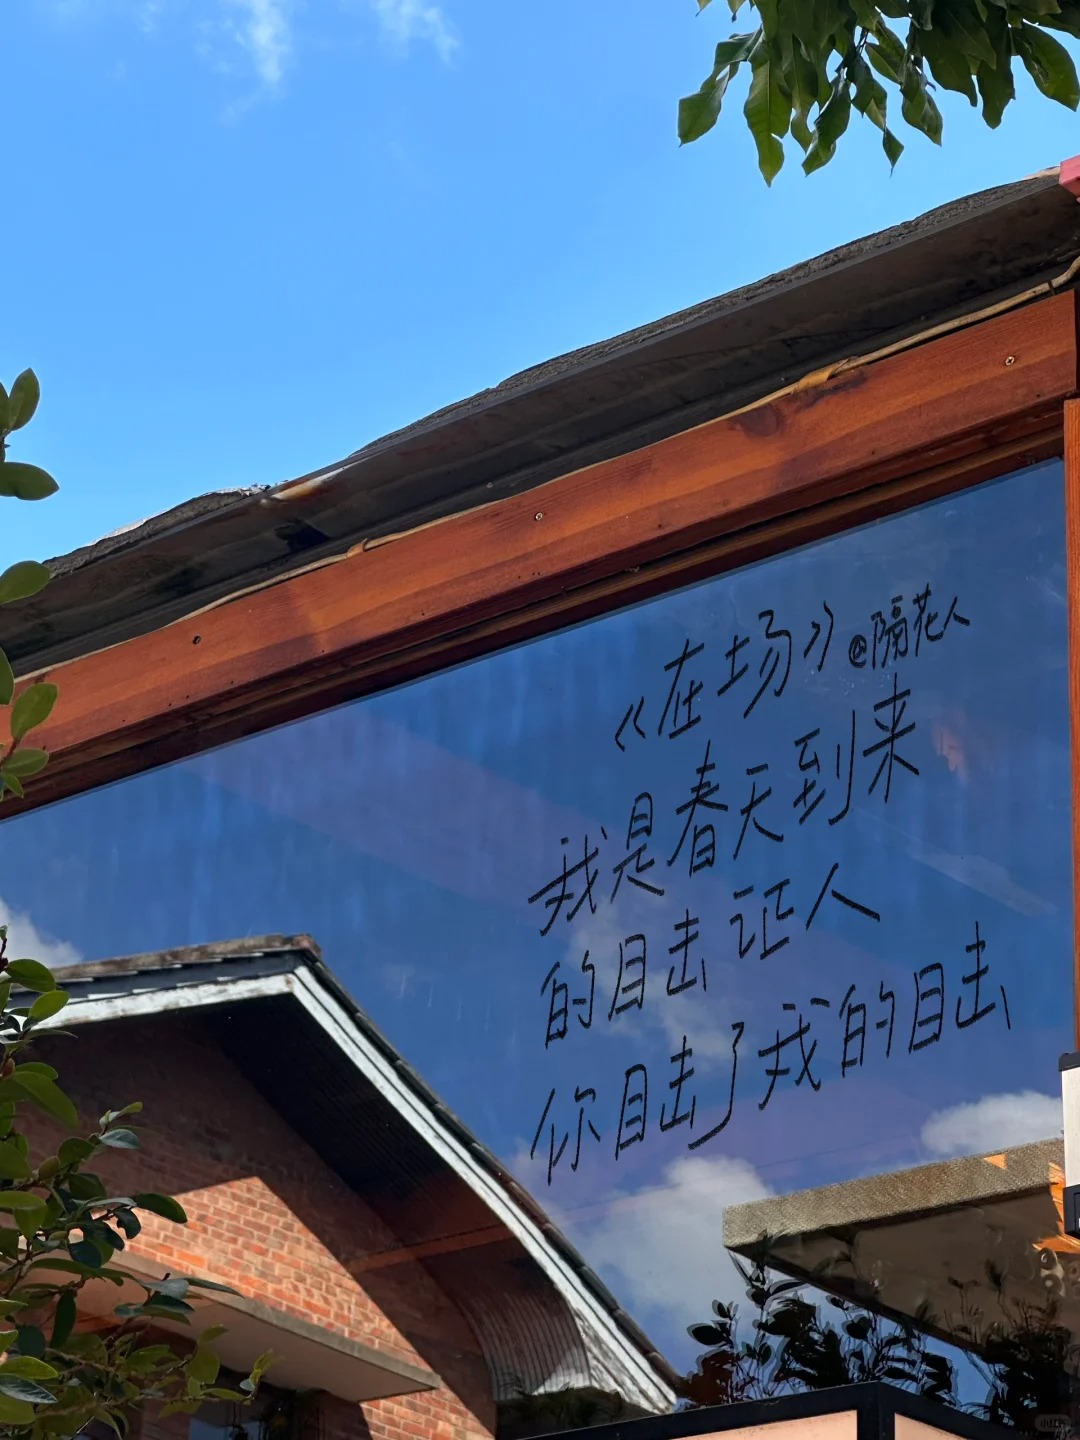 《在场》@隔花人
我是春天到来
的目击证人
你目击了我的目击
小红书